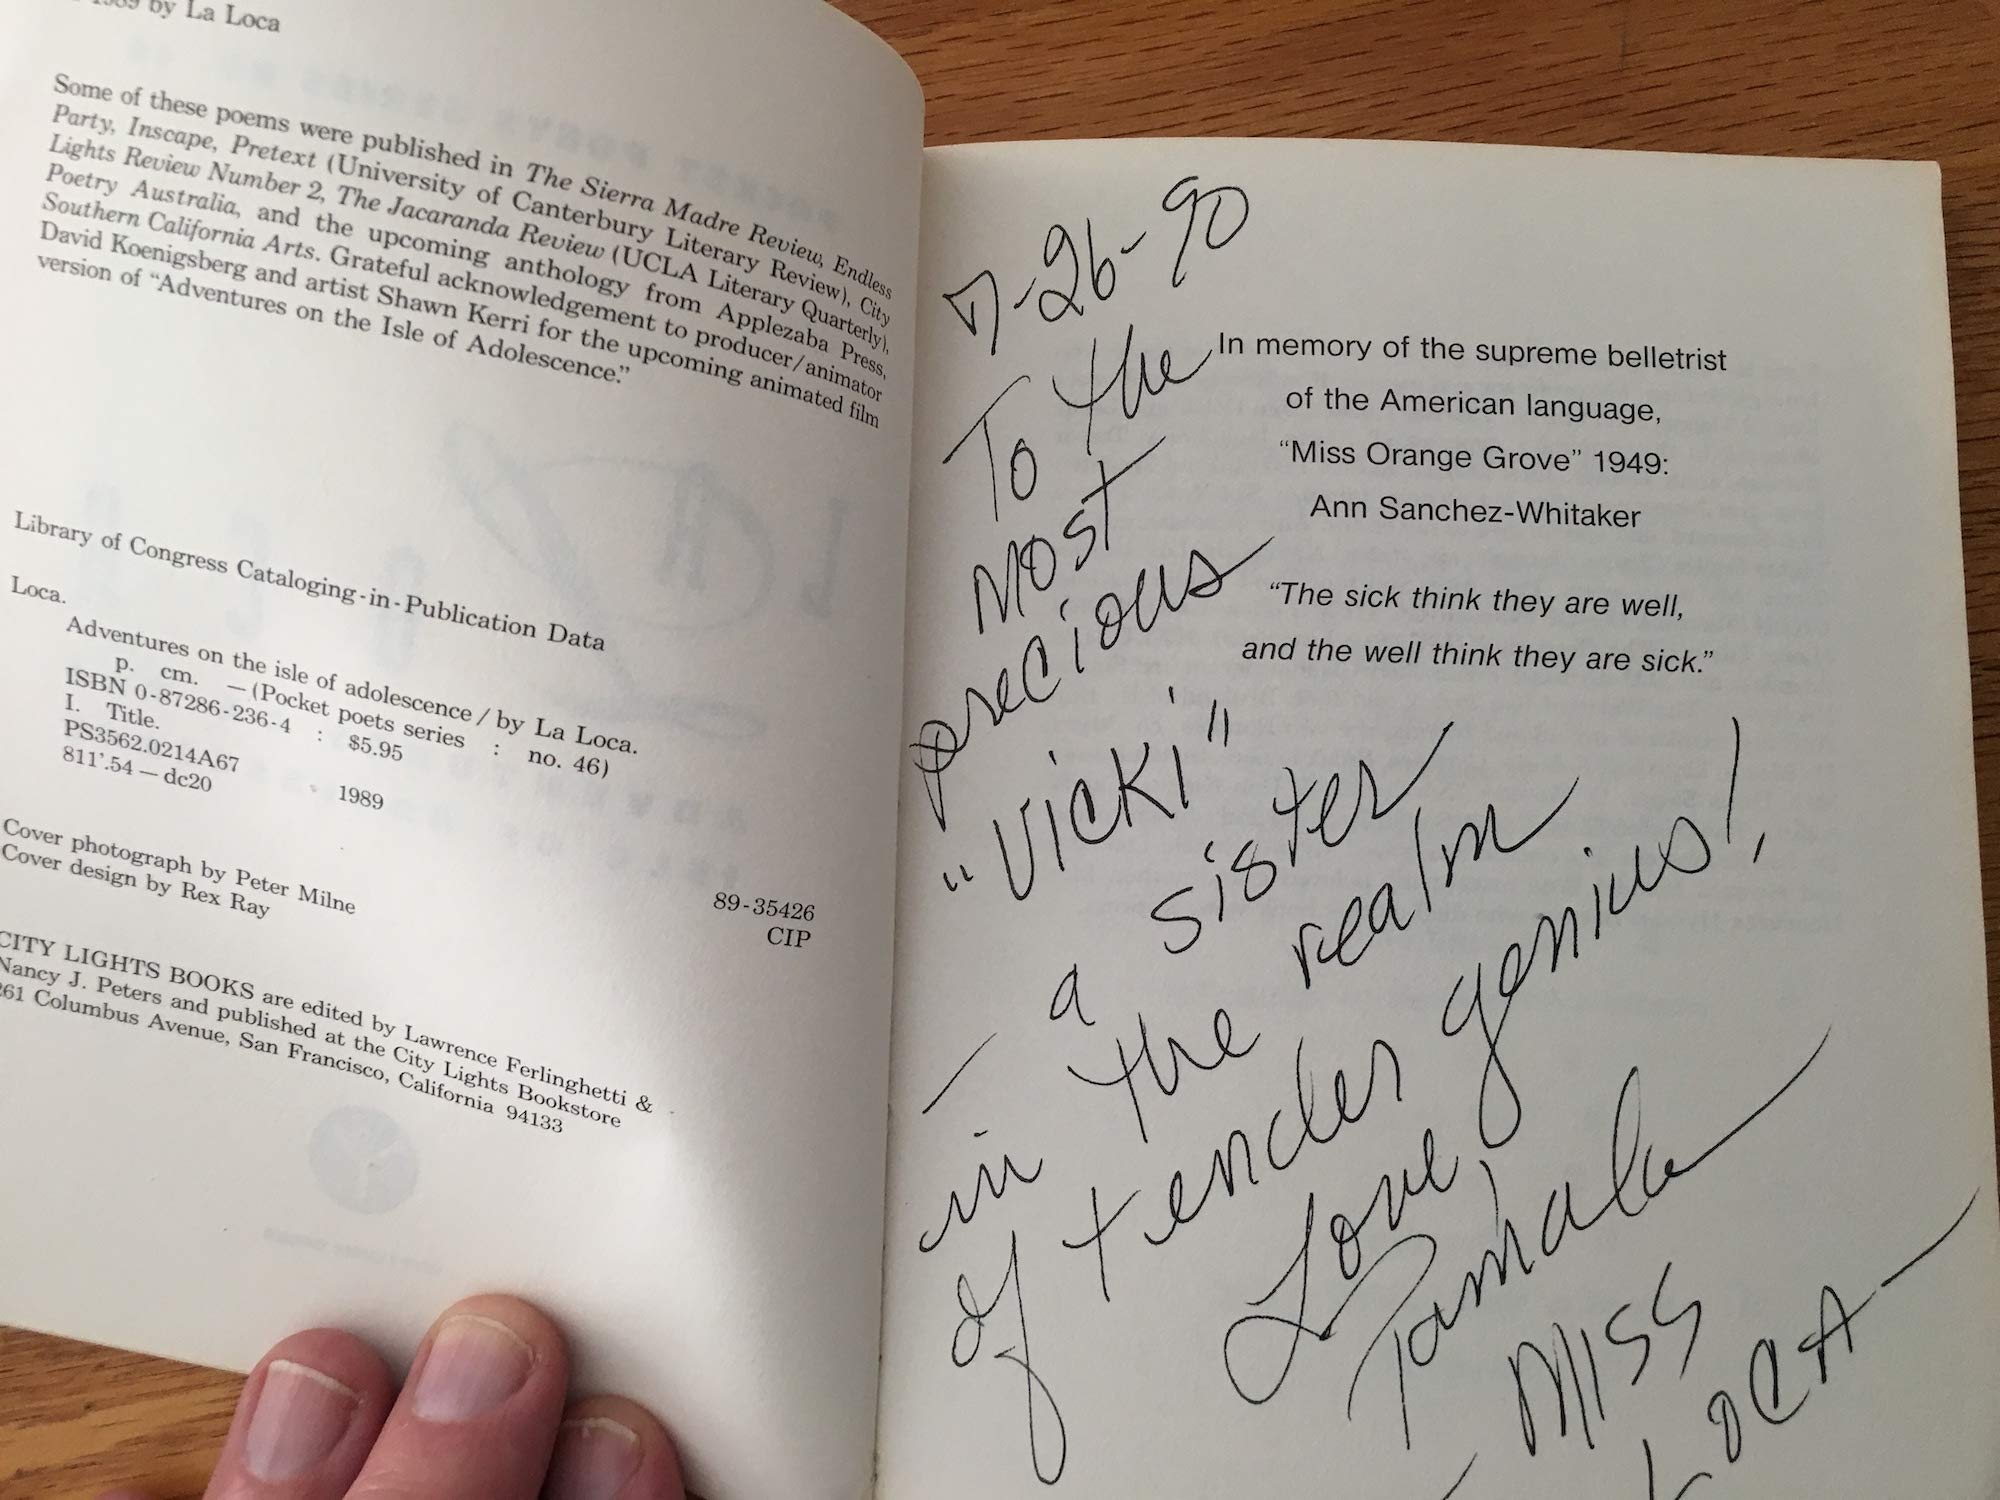 1989 by La Loca
Some of these poems were published in The Sierra Madre Review, Endless
Party, Inscape, Pretext (University of Canterbury Literary Review), City
Lights Review Number 2, The Jacaranda Review (UCLA Literary Quarterly),
Poetry Australia, and the upcoming anthology from Applezaba Press,
Southern California Arts. Grateful acknowledgement to producer/animator
David Koenigsberg and artist Shawn Kerri for the upcoming animated film
version of “Adventures on the Isle of Adolescence.”
Library of Congress Cataloging-in-Publication Data
Loca.
Adventures on the isle of adolescence / by La Loca.
p. cm. — (Pocket poets series : no. 46)
ISBN 0-87286-236-4 : $5.95
I. Title.
PS3562.0214A67 1989
811'.54 — dc20
89-35426
CIP
Cover photograph by Peter Milne
Cover design by Rex Ray
CITY LIGHTS BOOKS are edited by Lawrence Ferlinghetti &
Nancy J. Peters and published at the City Lights Bookstore
261 Columbus Avenue, San Francisco, California 94133
In memory of the supreme belletrist
of the American language,
“Miss Orange Grove” 1949:
Ann Sanchez-Whitaker
“The sick think they are well,
and the well think they are sick.”
7-26-90
To the
most
precious
“Vicki”
— a sister
in the realm
of tender genius!
Love,
Pamala
- MISS
LOCA -